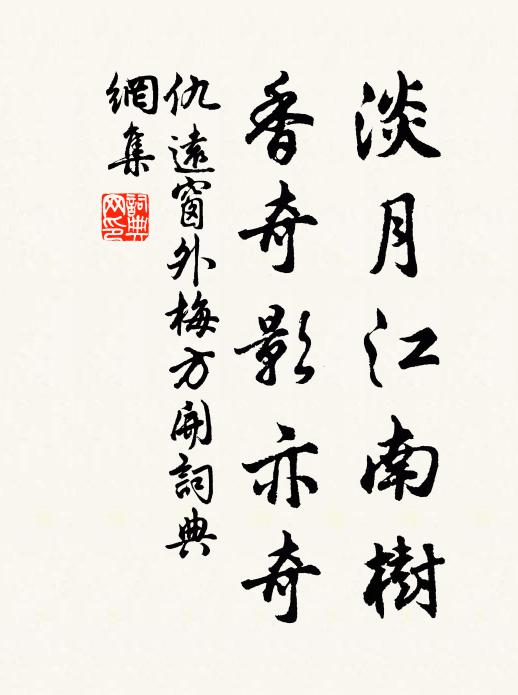 淡月江南樹
香奇影亦奇
仇遠窗外梅方開詞典
網集
詞典
网印